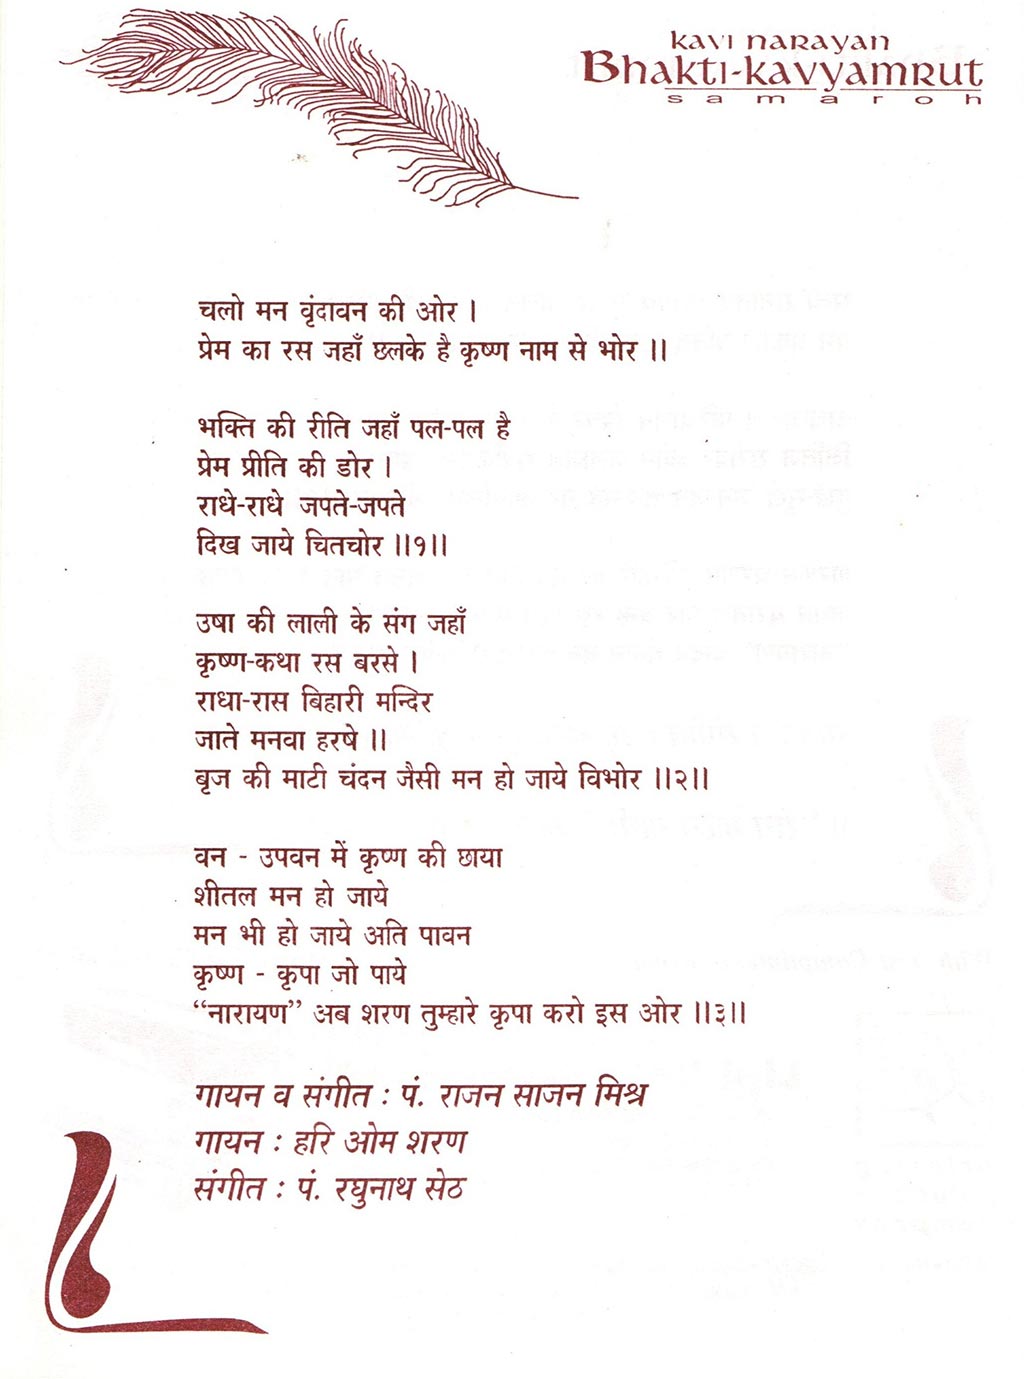 KAVI NARAYAN
Bhakti-kavyamrut
samaroh
चलो मन वृंदावन की ओर ।
प्रेम का रस जहाँ छलके है कृष्ण नाम से भोर ।।
भक्ति की रीति जहाँ पल-पल है
प्रेम प्रीति की डोर ।
राधे-राधे जपते-जपते
दिख जाये चितचोर ।।१।।
उषा की लाली के संग जहाँ
कृष्ण-कथा रस बरसे ।
राधा-रास बिहारी मन्दिर
जाते मनवा हरषे ।।
बृज की माटी चंदन जैसी मन हो जाये विभोर ।।२।।
वन - उपवन में कृष्ण की छाया
शीतल मन हो जाये
मन भी हो जाये अति पावन
कृष्ण - कृपा जो पाये
“नारायण” अब शरण तुम्हारे कृपा करो इस ओर ।।३।।
गायन व संगीत : पं. राजन साजन मिश्र
गायन : हरि ओम शरण
संगीत : पं. रघुनाथ सेठ